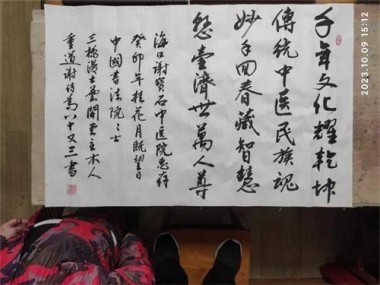 千年文化耀乾坤
传统中医民族魂
妙手回春藏智慧
悬壶济世万人尊
海口谢宝石中医院惠存
癸卯年桂花月既望日
中国书法院士
三槐
主木人
重道谢
八十又三书
2023.10.09 15:12